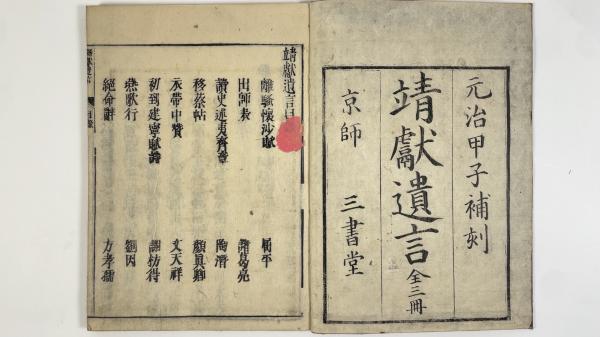 元治甲子補刻
靖獻遺言 全三冊
京師 三書堂
靖獻遺言目
離騷懷沙賦 屈平
出師表 諸葛亮
讀史述夷齊章 陶潛
移蔡帖 顏眞卿
衣帶中贊 文天祥
初到建寧賦詩 謝枋得
燕歌行 劉因
絕命辭 方孝孺